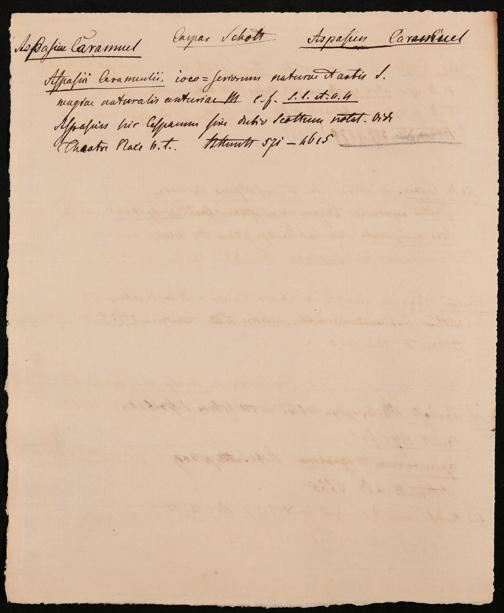 Aspasius Caramuel Caspar Schott Aspasius Caramuel
Aspasii Caramuelii, ioco=seriorum naturae et artis s.
magiae naturalis centuriae III c.f. s.l. et a. 4
Aspasius hic Casparum sive dictis Scottum notat. Vide
Theatr. Plac. 571 — 4615